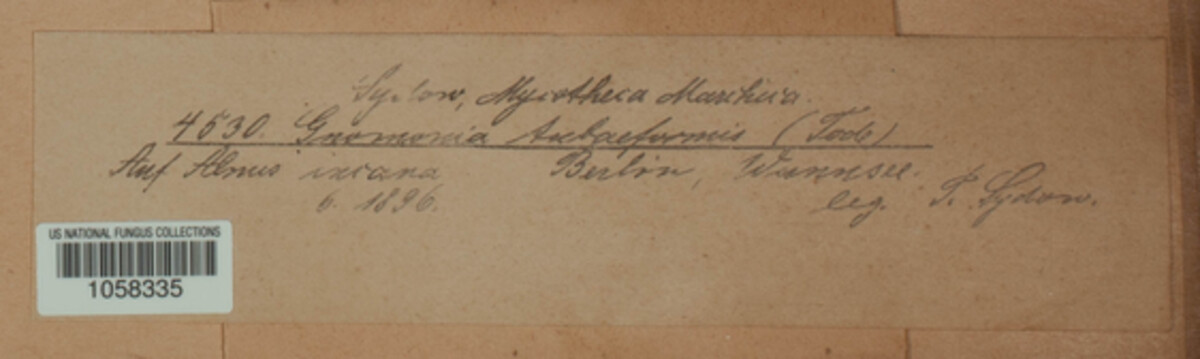 Sydow, Mycotheca Marchica.
4530. Gnomonia tubaeformis (Tode)
Auf Alnus incana Berlin, Wannsee.
6. 1896. leg. P. Sydow.
US NATIONAL FUNGUS COLLECTIONS
1058335